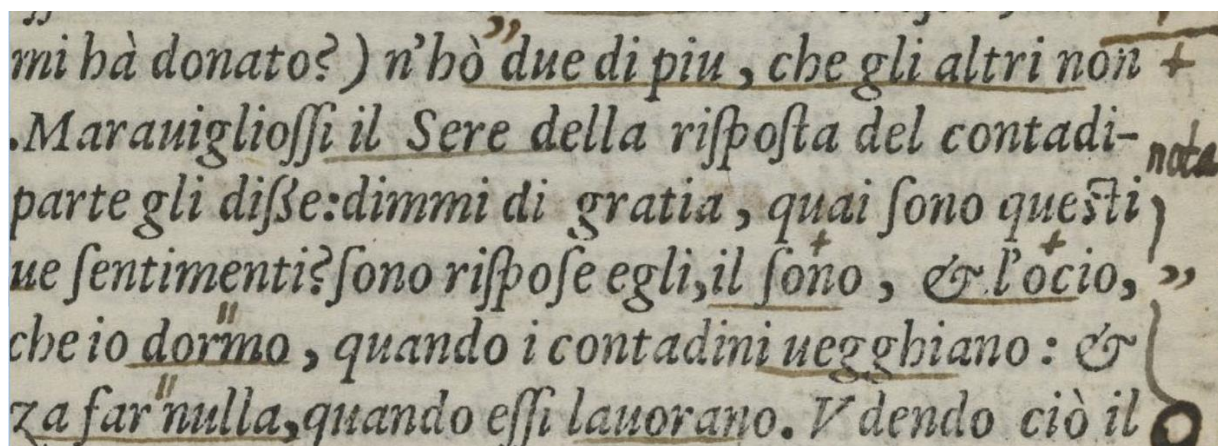 mi hà donato? ) n'hò due di piu, che gli altri non +
.Marauigliossi il Sere della risposta del contadi-
nota
parte gli disse: dimmi di gratia, quai sono questi
ue sentimenti? sono rispose egli, il sono, & l'ocio,
che io dormo, quando i contadini uegghiano: &
za far nulla, quando essi lauorano. Vdendo ciò il